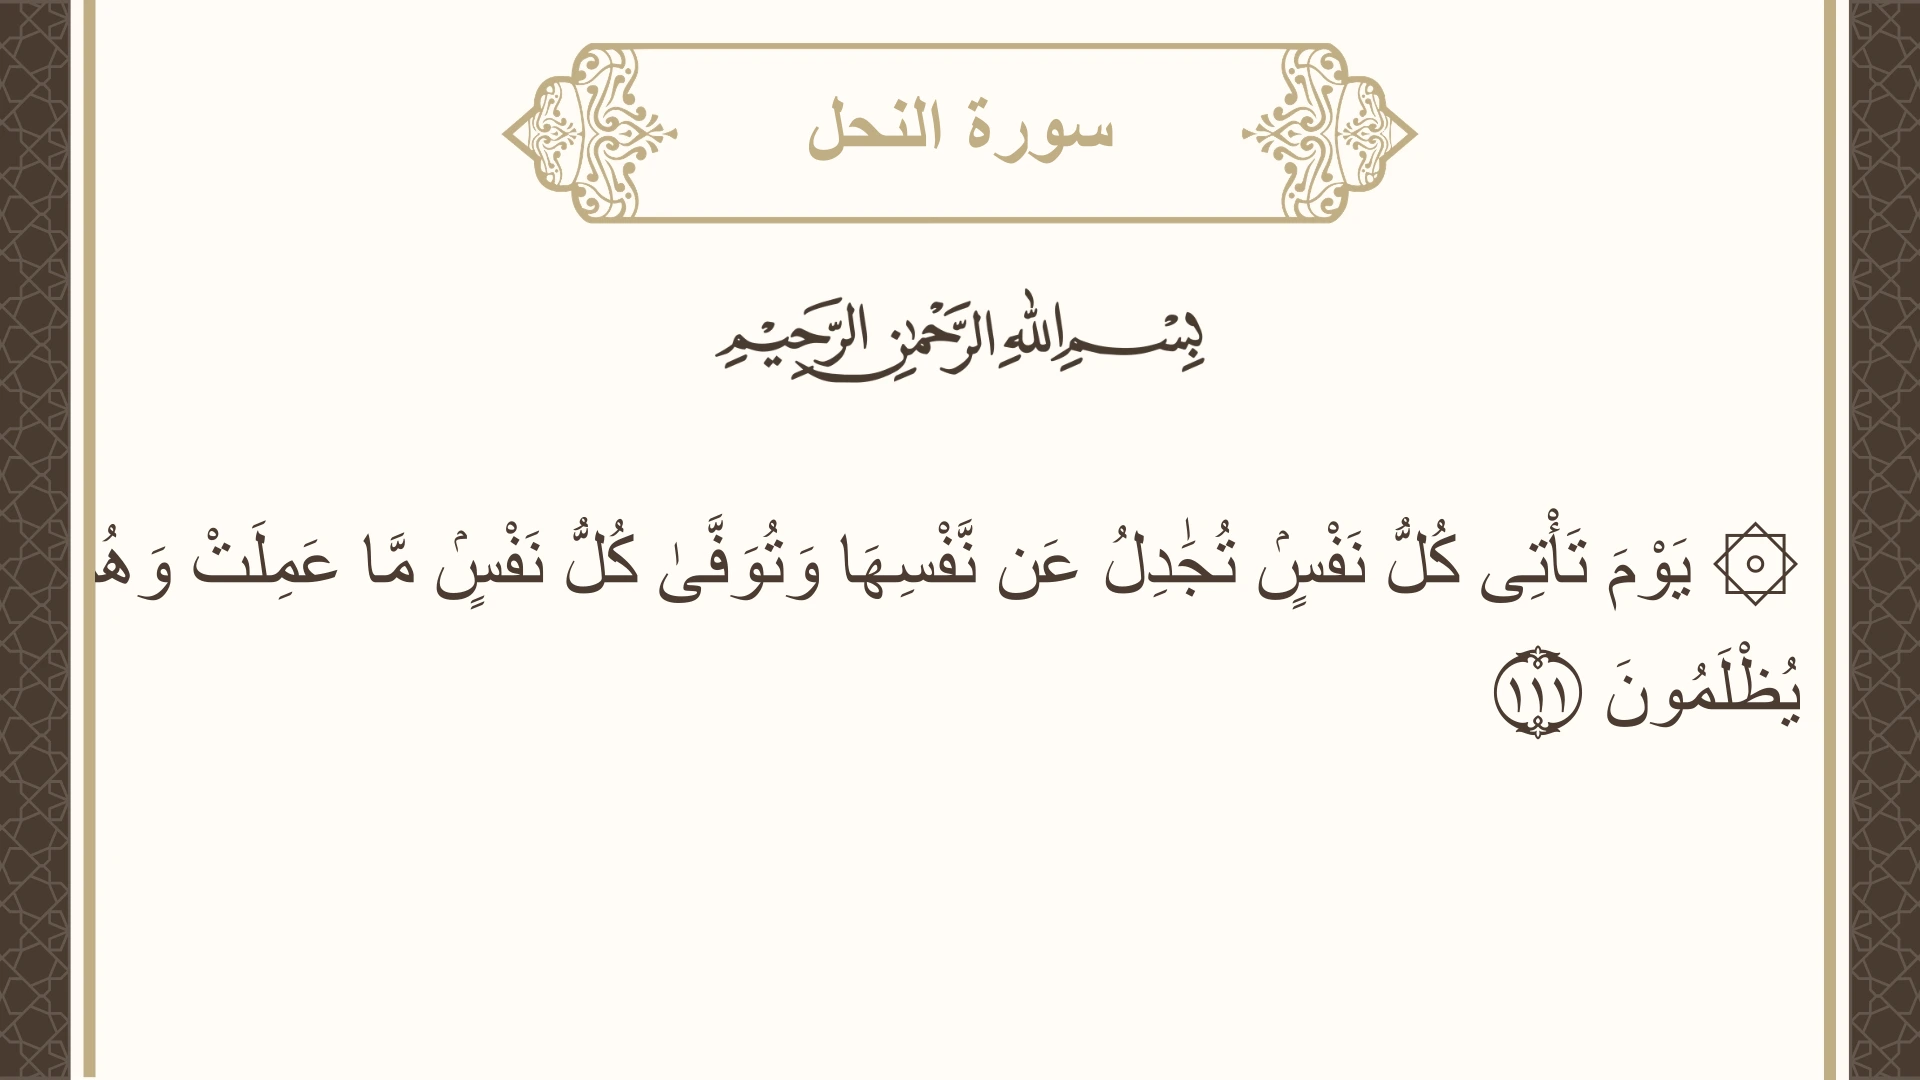 سورة النحل
بِسْمِ اللهِ الرَّحْمٰنِ الرَّحِيْمِ
۞ يَوْمَ تَأْتِى كُلُّ نَفْسٍۢ تُجَٰدِلُ عَن نَّفْسِهَا وَتُوَفَّىٰ كُلُّ نَفْسٍۢ مَّا عَمِلَتْ وَهُ
يُظْلَمُونَ ١١١